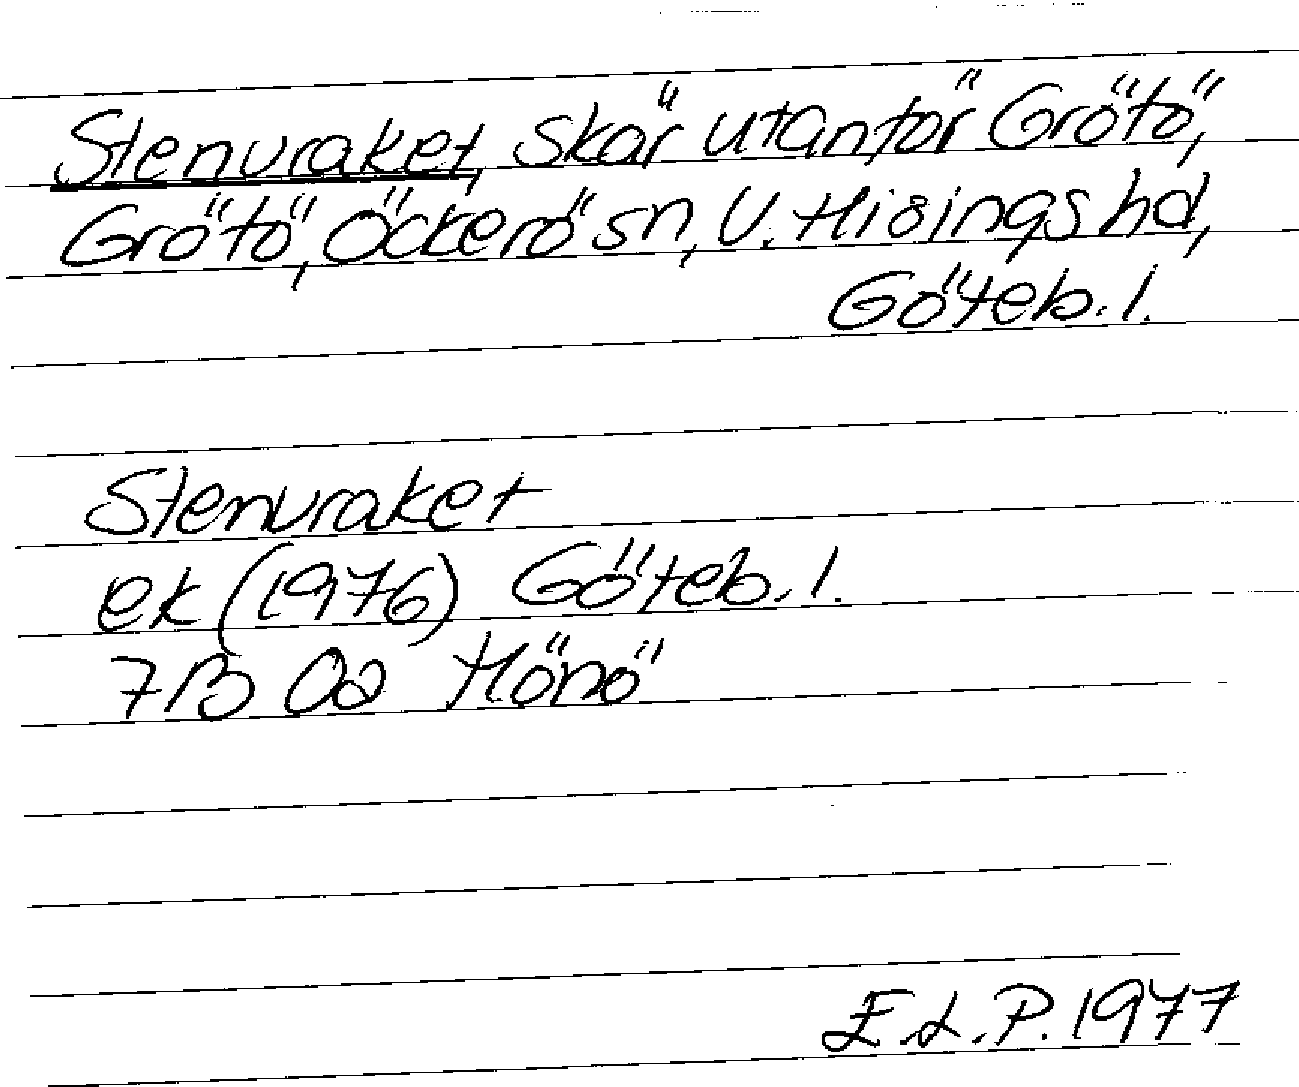 Stenvraket, skär utanför Grötö,
Grötö, Öckerö sn, V. Hisings hd,
Göteb. l.
Stenvraket
ek (1976) Göteb. l.
7B 0a Hönö
E.L.P. 1977